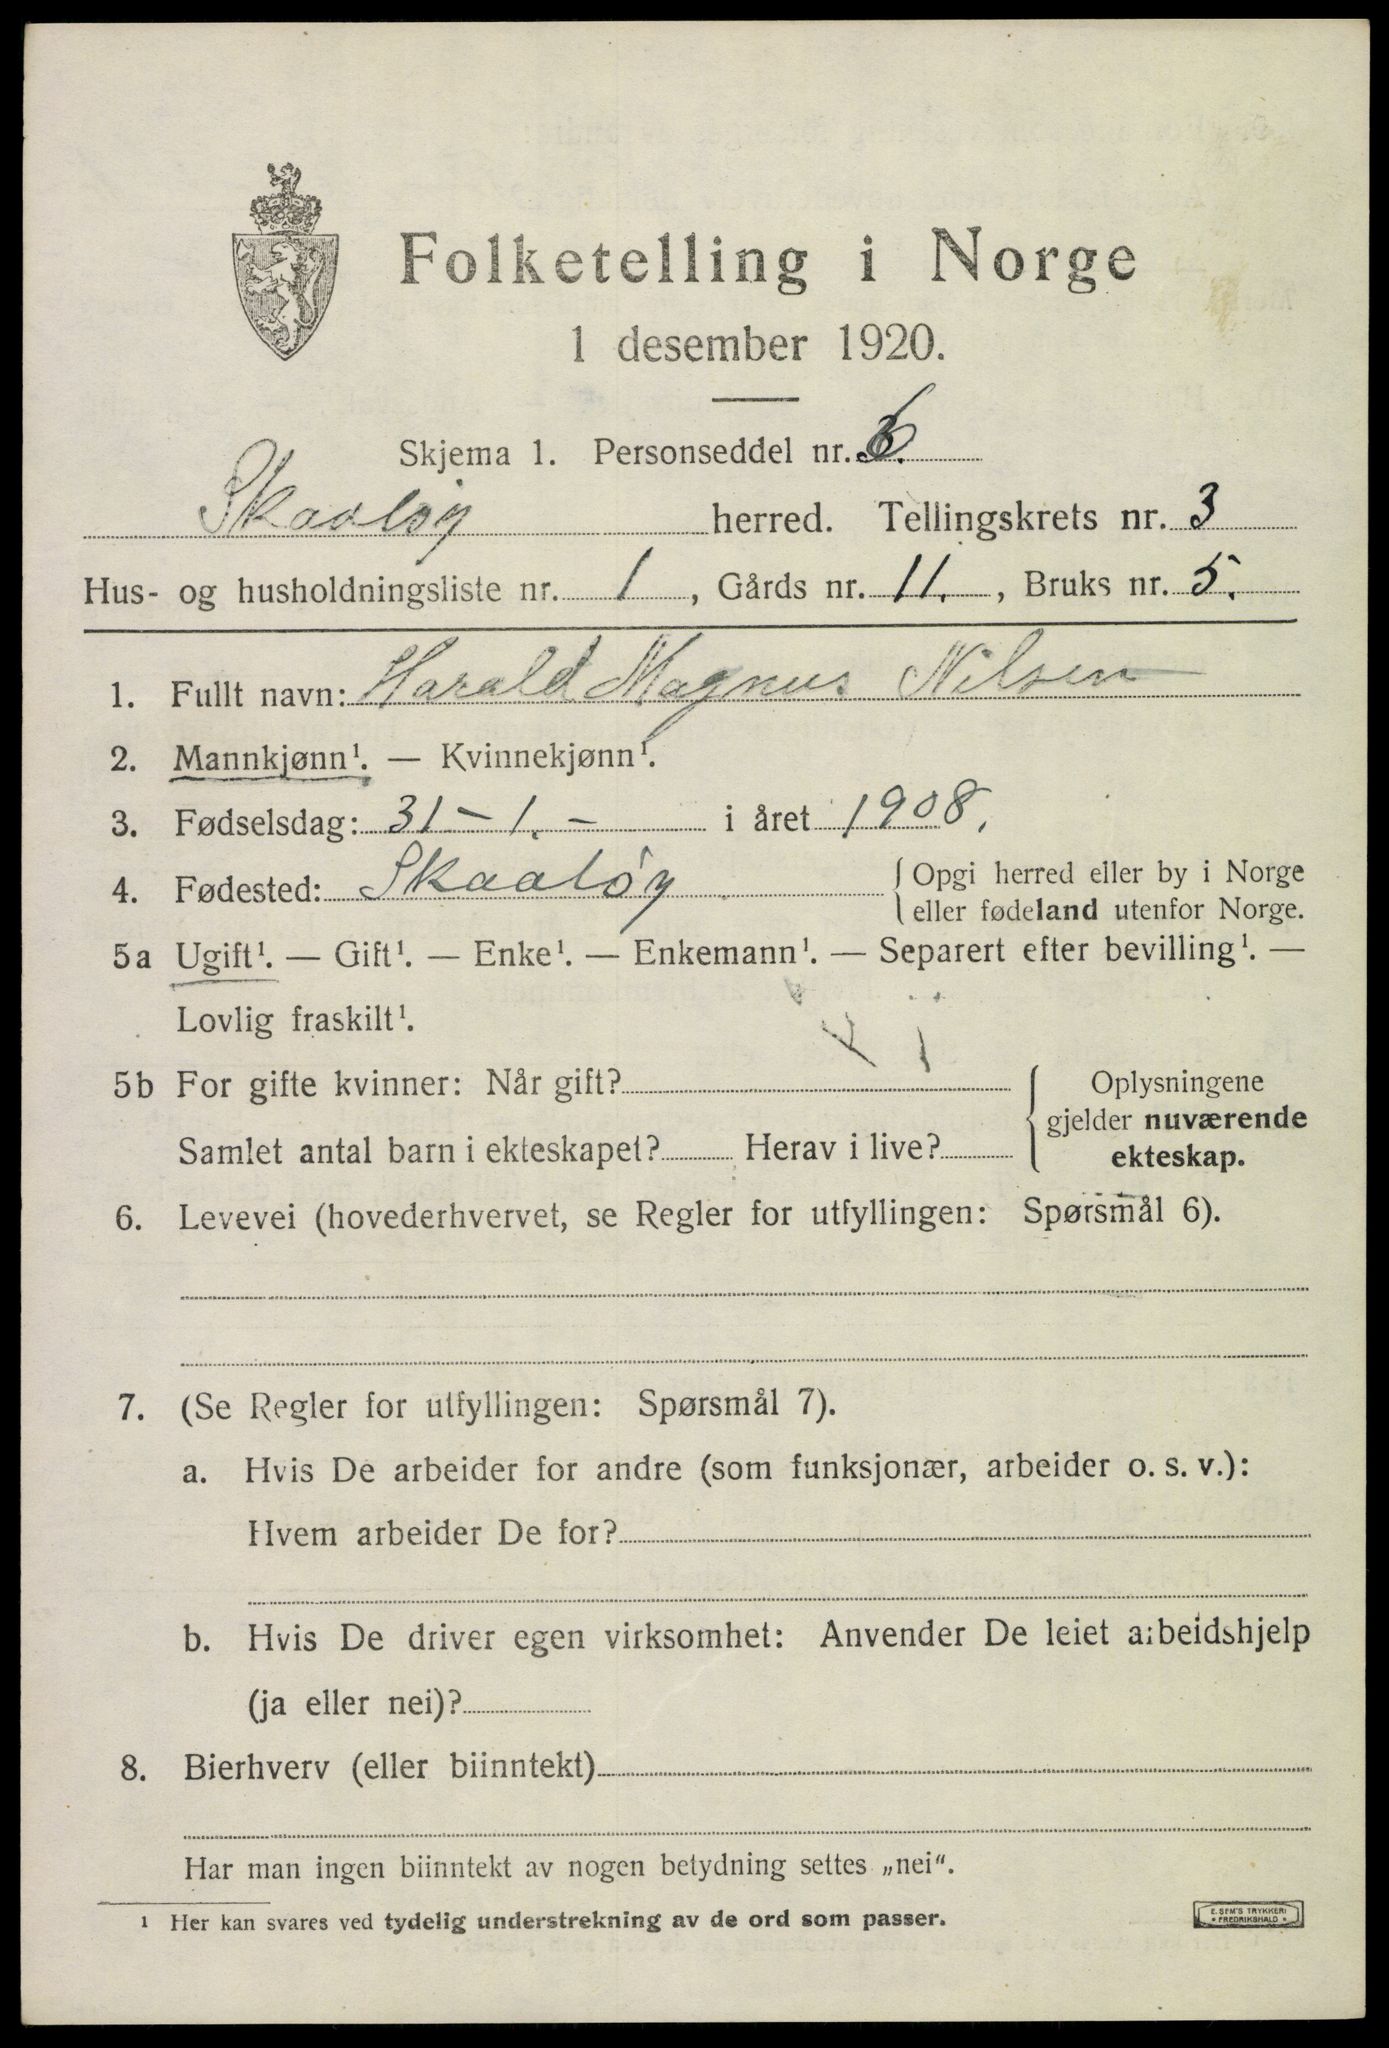 Folketelling i Norge
1 desember 1920.
Skjema 1. Personseddel nr. 6.
Skaaløy herred. Tellingskrets nr. 3
Hus- og husholdningsliste nr. 1, Gårds nr. 11., Bruks nr. 5.
1. Fullt navn: Harald Magnus Nilsen
2. Mannkjønn¹. — Kvinnekjønn¹.
3. Fødselsdag: 31 - 1. - i året 1908.
4. Fødested: Skaaløy { Opgi herred eller by i Norge
eller fødeland utenfor Norge.
5a Ugift¹. — Gift¹. — Enke¹. — Enkemann¹. — Separert efter bevilling¹. —
Lovlig fraskilt¹.
5b For gifte kvinner: Når gift?
Samlet antal barn i ekteskapet? Herav i live?
Oplysningene
gjelder nuværende
ekteskap.
6. Levevei (hovederhvervet, se Regler for utfyllingen: Spørsmål 6).
7. (Se Regler for utfyllingen: Spørsmål 7).
a. Hvis De arbeider for andre (som funksjonær, arbeider o. s. v.):
Hvem arbeider De for?
b. Hvis De driver egen virksomhet: Anvender De leiet arbeidshjelp
(ja eller nei)?
8. Bierhverv (eller biinntekt)
Har man ingen biinntekt av nogen betydning settes „nei“.
¹ Her kan svares ved tydelig understrekning av de ord som passer.
E. SEM'S TRYKKERI
* FREDRIKSHALD *